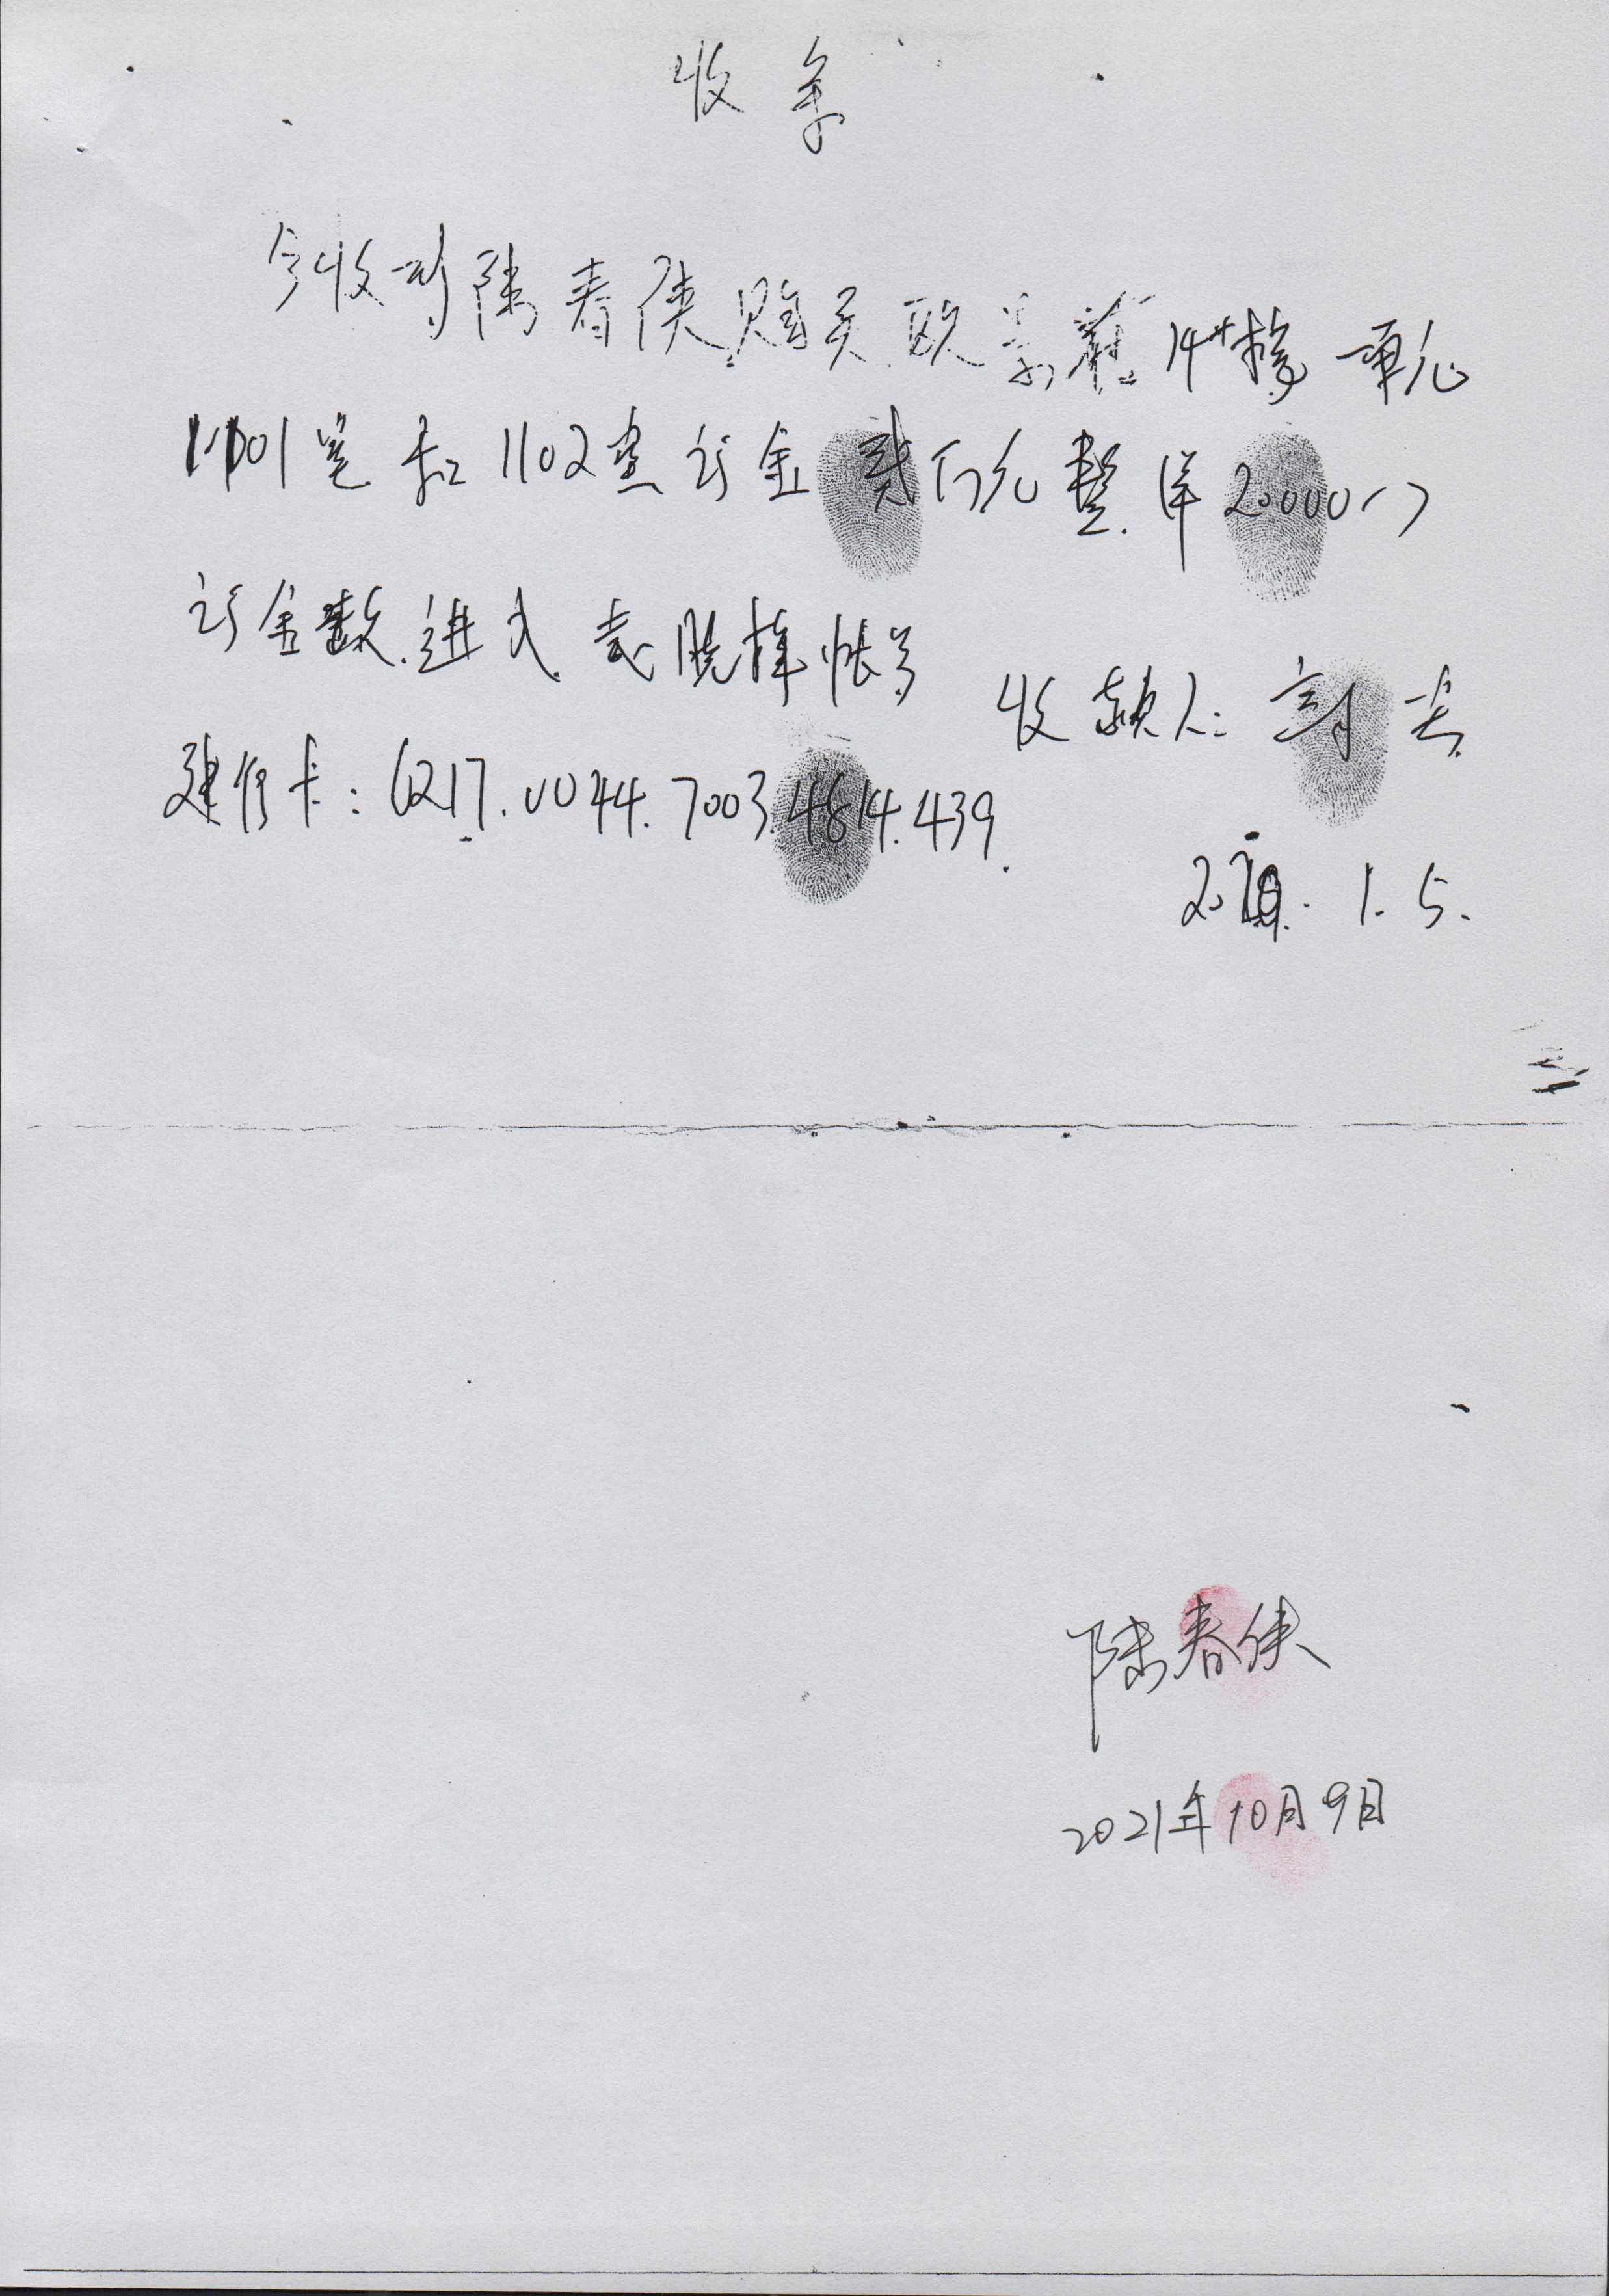 收条
今收到陆春侠购买欧景苑14#楼一单元
1101室和1102室订金贰万元整.(¥20000())
订金数.进入 晓 帐号
收款人:
建行卡:6217.0044.7003.4814.439.
1.5.
陆春侠
2021年10月9日